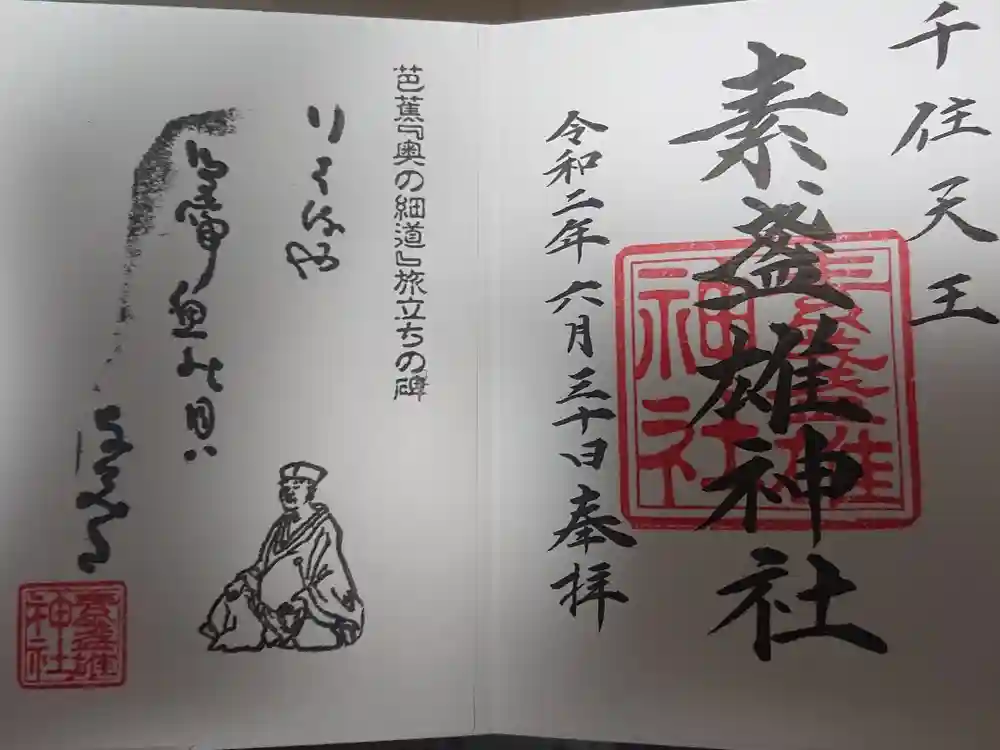 千住天王
素盞雄神社
素盞雄
神社
令和二年六月三十日奉拝
芭蕉『奥の細道』旅立ちの碑
行く春や
鳥啼魚の目は
素盞雄
神社